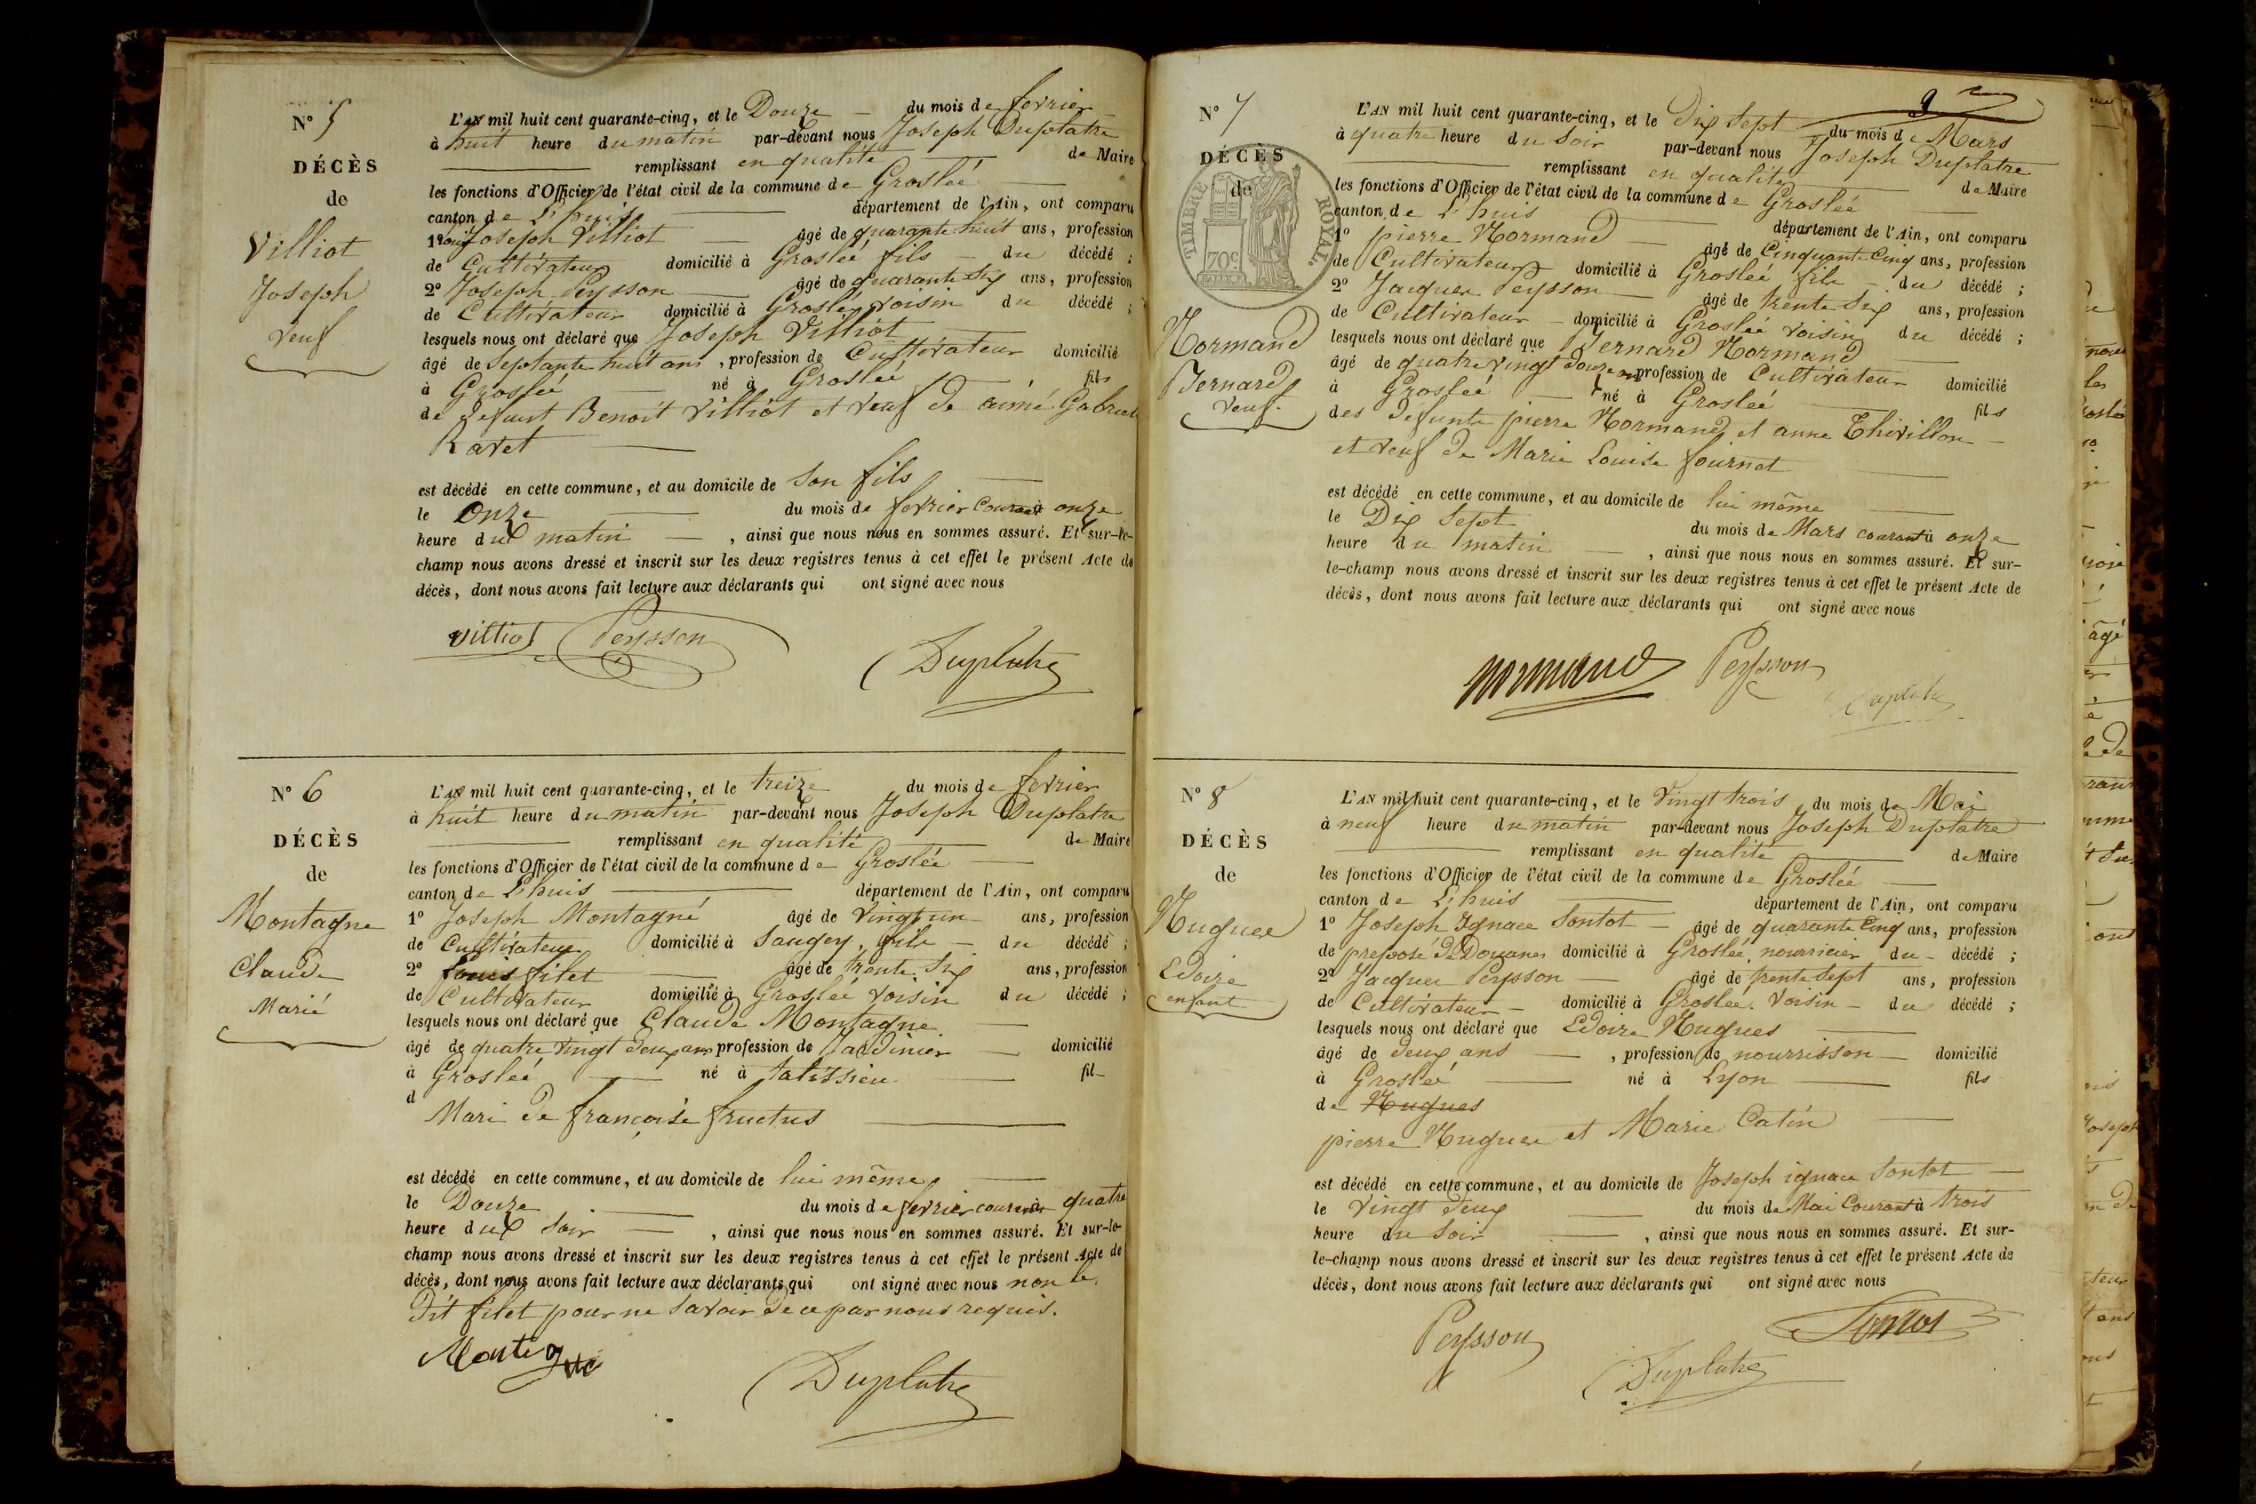 N° 5
DÉCÈS
de
Villiot
Joseph
veuf
L'AN mil huit cent quarante-cinq, et le Douze du mois de fevrier
à huit heure du matin par-devant nous Joseph Duplatre
remplissant en qualité de Maire
les fonctions d'Officier de l'état civil de la commune de Groslée
canton de L'huis département de l'Ain, ont comparu
1° Joseph Villiot âgé de quarante huit ans, profession
de Cultivateur domicilié à Groslée fils du décédé ;
2° Joseph Peysson âgé de quarante six ans, profession
de Cultivateur domicilié à Groslée voisin du décédé ;
lesquels nous ont déclaré que Joseph Villiot
âgé de Septante huit ans, profession de Cultivateur domicilié
à Groslée né à Groslée fils
de defunt Benoit Villiot et veuf de aimé Gabriel
Ravet
est décédé en cette commune, et au domicile de son fils
le Onze du mois de fevrier courant à onze
heure du matin, ainsi que nous nous en sommes assuré. Et sur-le-
champ nous avons dressé et inscrit sur les deux registres tenus à cet effet le présent Acte de
décès, dont nous avons fait lecture aux déclarants qui ont signé avec nous
villiot Peysson
Duplatre
N° 6
DÉCÈS
de
Montagne
Claude
Marié
L'AN mil huit cent quarante-cinq, et le treize du mois de fevrier
à huit heure du matin par-devant nous Joseph Duplatre
remplissant en qualité de Maire
les fonctions d'Officier de l'état civil de la commune de Groslée
canton de L'huis département de l'Ain, ont comparu
1° Joseph Montagne âgé de vingt un ans, profession
de Cultivateur domicilié à Saugey, fils du décédé ;
2° Louis filet âgé de trente six ans, profession
de Cultivateur domicilié à Groslée voisin du décédé ;
lesquels nous ont déclaré que Claude Montagne
âgé de quatre vingt deux ans profession de Jardinier domicilié
à Groslée né à talissieu fil
d
Mari de françoise fructus
est décédé en cette commune, et au domicile de lui même
le Douze du mois de fevrier courant à quatre
heure du soir, ainsi que nous nous en sommes assuré. Et sur-le-
champ nous avons dressé et inscrit sur les deux registres tenus à cet effet le présent Acte de
décès, dont nous avons fait lecture aux déclarants qui ont signé avec nous non le
Dit filet pour ne savoir de ce par nous requis.
Montagne
Duplatre
9
N° 7
DÉCÈS
de
TIMBRE ROYAL
70c
Normand
Bernard
veuf
L'AN mil huit cent quarante-cinq, et le Dix sept du mois de Mars
à quatre heure du soir par-devant nous Joseph Duplatre
remplissant en qualité de Maire
les fonctions d'Officier de l'état civil de la commune de Groslée
canton de L'huis département de l'Ain, ont comparu
1° pierre Normand âgé de Cinquante cinq ans, profession
de Cultivateur domicilié à Groslée fils du décédé ;
2° Jacques Peysson âgé de trente six ans, profession
de Cultivateur domicilié à Groslée voisin du décédé ;
lesquels nous ont déclaré que Bernard Normand
âgé de quatre vingt douze ans profession de Cultivateur domicilié
à Groslée né à Groslée fils
des defunts pierre Normand et anne Thivillon
et veuf de Marie Louise fournet
est décédé en cette commune, et au domicile de lui même
le Dix Sept du mois de Mars courant à onze
heure du matin, ainsi que nous nous en sommes assuré. Et sur-
le-champ nous avons dressé et inscrit sur les deux registres tenus à cet effet le présent Acte de
décès, dont nous avons fait lecture aux déclarants qui ont signé avec nous
normand Peysson
Duplatre
N° 8
DÉCÈS
de
Hugues
Edoire
enfant
L'AN mil huit cent quarante-cinq, et le vingt trois du mois de Mai
à neuf heure du matin par-devant nous Joseph Duplatre
remplissant en qualité de Maire
les fonctions d'Officier de l'état civil de la commune de Groslée
canton de L'huis département de l'Ain, ont comparu
1° Joseph Ignace Sontot âgé de quarante cinq ans, profession
de preposé de Douanes domicilié à Groslée, nourricier du décédé ;
2° Jacques Peysson âgé de trente sept ans, profession
de Cultivateur domicilié à Groslée. voisin du décédé ;
lesquels nous ont déclaré que Edoire Hugues
âgé de deux ans, profession de nourrisson domicilié
à Groslée né à Lyon fils
de Hugues
pierre Hugues et Marie Catin
est décédé en cette commune, et au domicile de Joseph ignace Sontot
le vingt deux du mois de Mai Courant à trois
heure du Soir, ainsi que nous nous en sommes assuré. Et sur-
le-champ nous avons dressé et inscrit sur les deux registres tenus à cet effet le présent Acte de
décès, dont nous avons fait lecture aux déclarants qui ont signé avec nous
Peysson Sontot
Duplatre